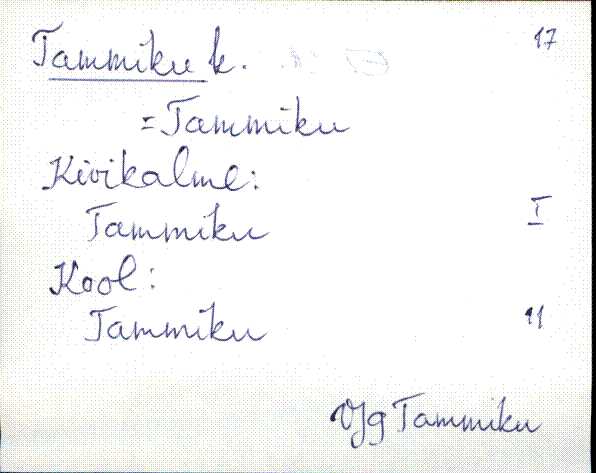 Tammiku k. 17
=Tammiku
Kivikalme:
Tammiku I
Kool:
Tammiku 11
VJg Tammiku